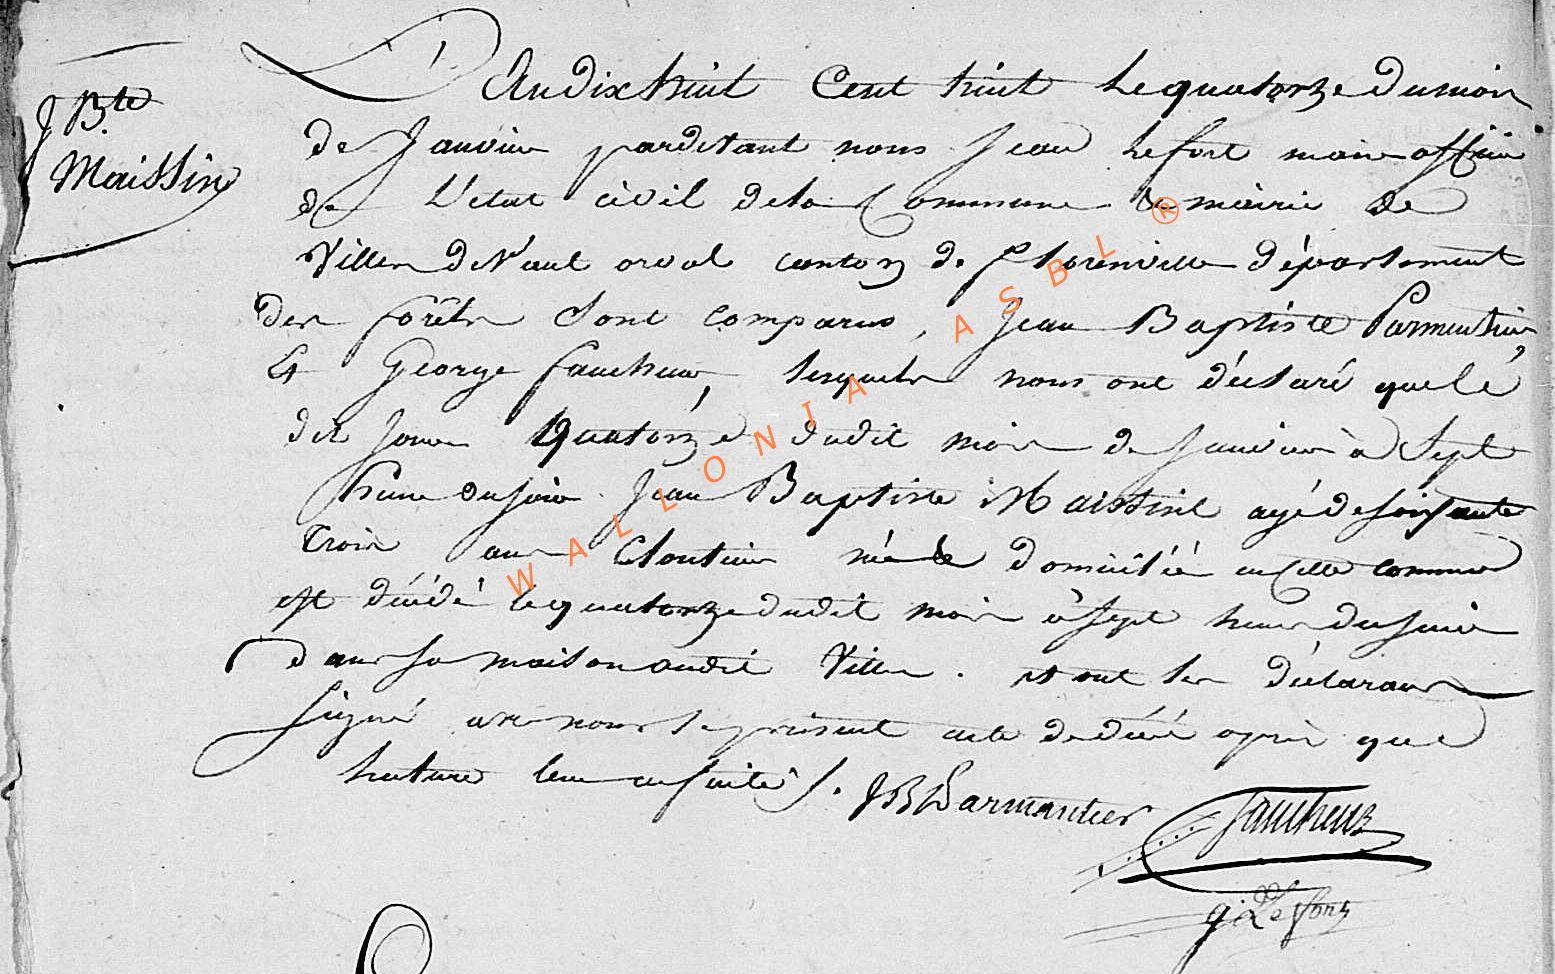 J Bte
Maissin
L'An dix huit Cent huit Le quatorze du mois
de Janvier pardevant nous Jean Lefort maire officier
de L'état civil de la Commune & mairie de
Villers devant orval canton de florenville département
des forêts Sont comparus, Jean Baptiste Parmentier,
Et George faucheux, lesquels nous ont déclaré que le
dit jour Quatorze dudit mois de Janvier à Sept
heure du soir Jean Baptiste Maissin agé de soixante
trois ans Cloutier né & domicilié en cette commune
est décédé le quatorze dudit mois à Sept heures du soir
dans sa maison audit Villers. et ont les déclarans
signé avec nous le présent acte de décé après que
lecture leur en fut faite.
J B Parmentier
faucheux
J. Lefort
WALLONIA ASBL ®